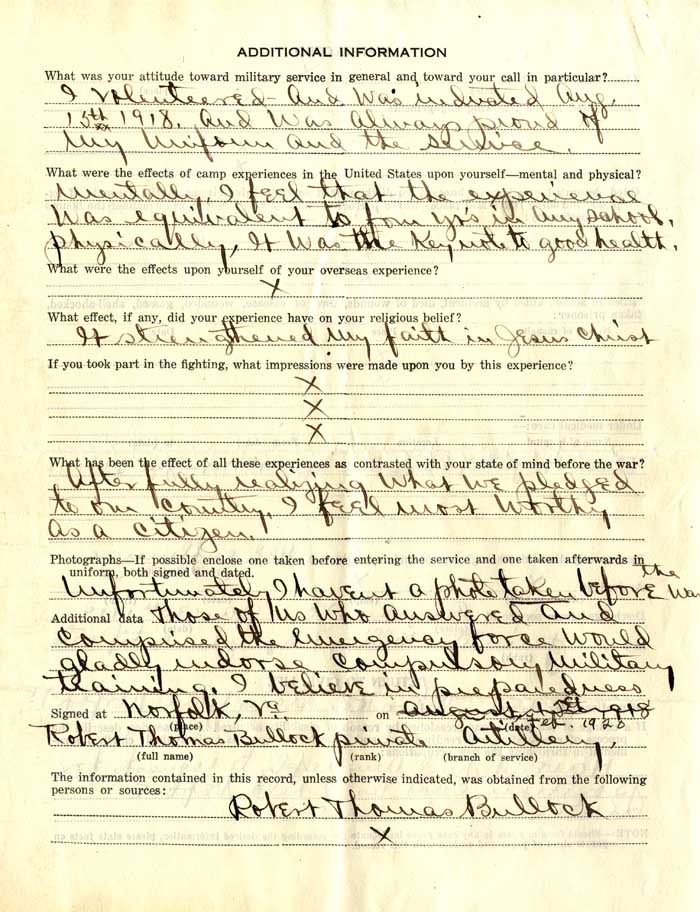 ADDITIONAL INFORMATION
What was your attitude toward military service in general and toward your call in particular?
I volenteered And Was inducted Aug,
15th 1918. And Was Always proud of
My Uniform and the service.
What were the effects of camp experiences in the United States upon yourself—mental and physical?
Mentally, I feel that the experience
Was equivalent to four yr's in Any school,
physically, It Was the Keynote to good health.
What were the effects upon yourself of your overseas experience?
X
What effect, if any, did your experience have on your religious belief?
It strengthened My faith in Jesus Christ
If you took part in the fighting, what impressions were made upon you by this experience?
X
X
X
What has been the effect of all these experiences as contrasted with your state of mind before the war?
After fully realizing What We pledged
to our Country, I feel most Worthy
as a Citizen.
Photographs—If possible enclose one taken before entering the service and one taken afterwards in
uniform, both signed and dated.
the
Unfortunately I havent a photo taken before War
Additional data Those of Us Who Answered And
Comprised the Emergency force Would
gladly indorse Compulsory Military
training. I believe in preparedness
Signed at Norfolk, Va. on August
(place) (date) Feb. 1920
Robert Thomas Bullock private Artillery,
(full name) (rank) (branch of service)
The information contained in this record, unless otherwise indicated, was obtained from the following
persons or sources:
Robert Thomas Bullock
X